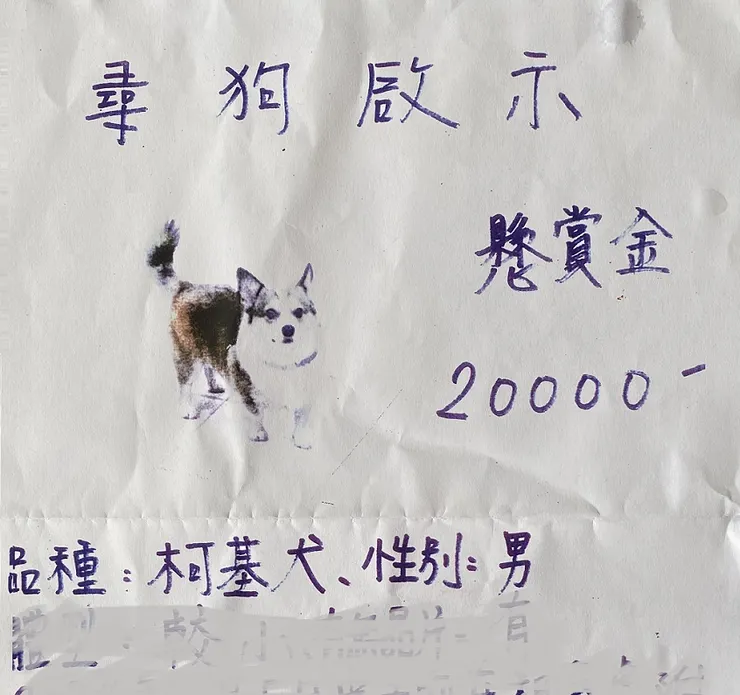 尋狗啟示
懸賞金
20000-
品種：柯基犬、性別：男
體型：較小、晶片：有